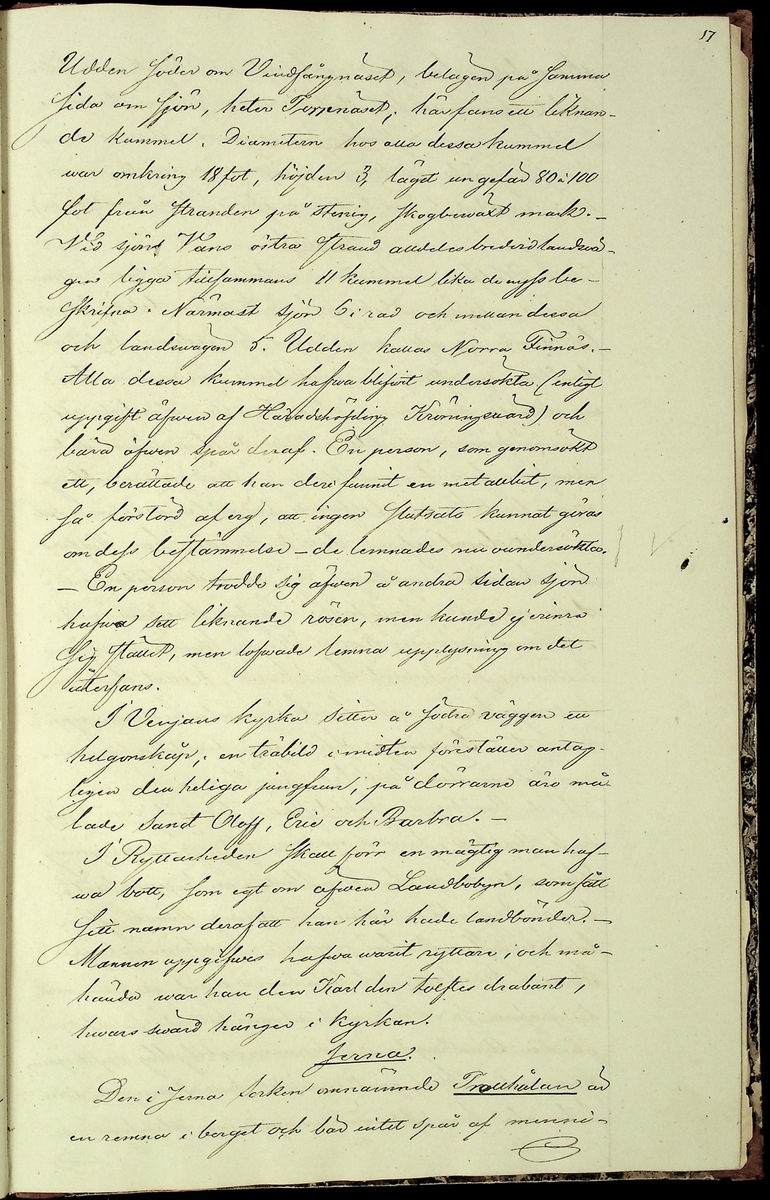 17
Udden söder om Vindfångnäset, belägen på samma
sida om sjön, heter Torpnäset; här fans ett liknan-
de kummel. Diametern hos alla dessa kummel
war omkring 18 fot, höjden 3, läget ungefär 80 à 100
fot från stranden på stenig, skogbewäxt mark. –
Vid sjön Vans östra strand alldeles bredvid landsvä-
gen ligga tillsammans 11 kummel lika de nyss be-
skrifna. Närmast sjön 6 i rad och mellan dessa
och landswägen 5. Udden kallas Norra Finnäs. –
Alla dessa kummel hafwa blifwit undersökta (enligt
uppgift äfwen af Häradshöfding Kröningsward) och
bära äfwen spår deraf. En person, som genomsökt
ett, berättade att han der funnit en metallbit, men
så förstörd af erg, att ingen slutsats kunnat göras
om dess bestämmelse – de lemnades nu oundersökta.
– En person trodde sig äfwen å andra sidan sjön
hafwa sett liknande rösen, men kunde ej erinra
sig stället, men lofwade lemna upplysning om det
återfans.
I Venjans kyrka sitter å södra väggen ett
helgonskåp; en träbild i midten föreställer antag-
ligen den heliga jungfrun; på dörrarne äro må-
lade Sanct Oloff, Eric och Barbra. –
I Ryttarheden skall förr en mägtig man haf-
wa bott, som egt om äfwen Landbobyn, som fått
sitt namn deraf att han här hade landbönder. –
Mannen uppgifwes hafwa warit ryttare; och må-
hända war han den Karl den tolftes drabant,
hwars swärd hänger i kyrkan.
Jerna.
Den i Jerna socken omnämnde Trollhålan är
en remna i berget och bär intet spår af menni-